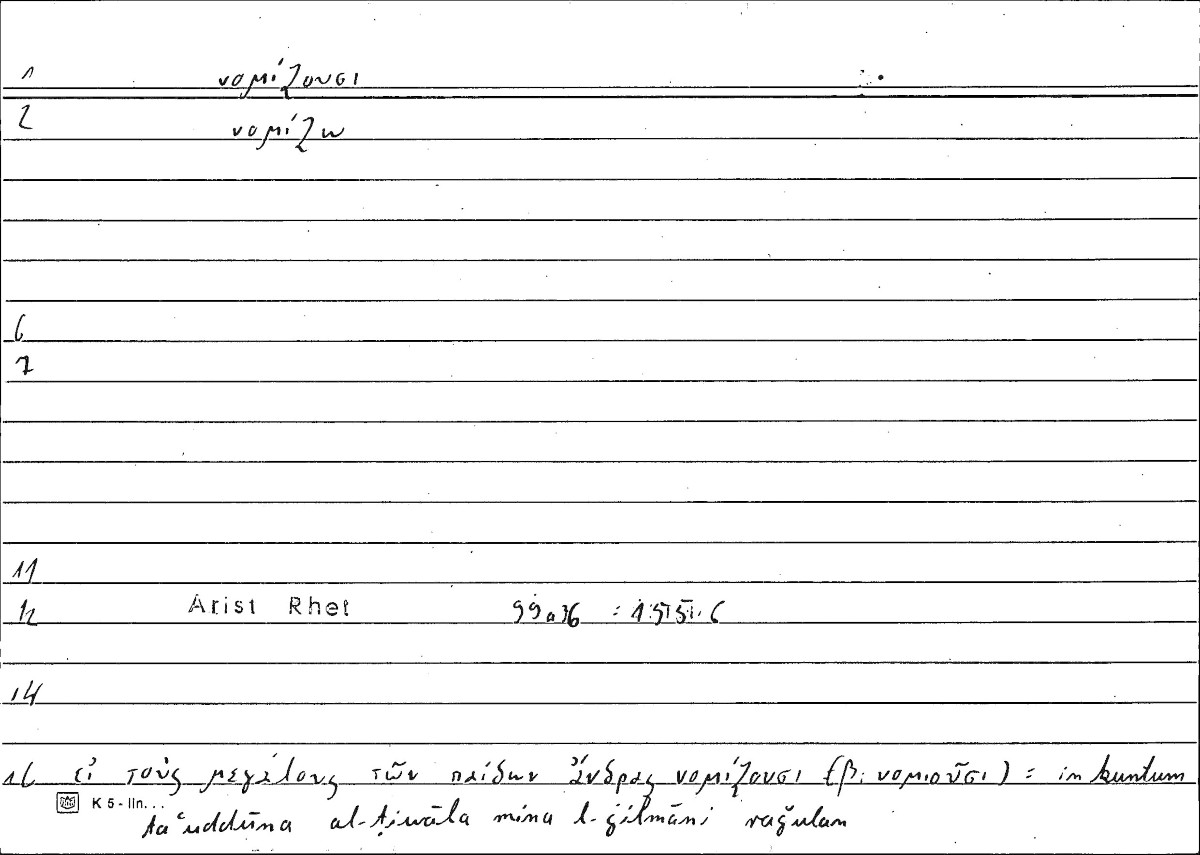 1 νομίζουσι
2 νομίζω
6
7
11
12 Arist Rhet 99a36 =
14
16 εἰ τοὺς μεγάλους τῶν παίδων ἄνδρας νομίζουσι (β: νομιοῦσι) = in kuntum
K 5 - IIn...
taʿuddūna al-ṭiwāla mina l-ġilmāni raǧulan